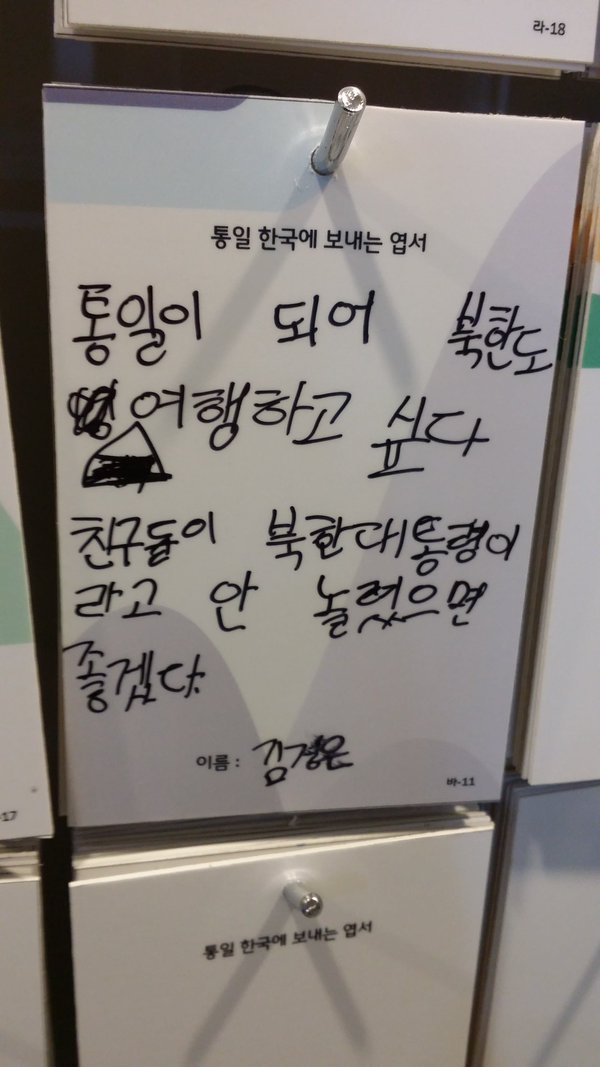 라-18
통일 한국에 보내는 엽서
통일이 되어 북한도
여행하고 싶다
친구들이 북한대통령이
라고 안 놀렸으면
좋겠다.
이름 : 김정은
바-11
-17
통일 한국에 보내는 엽서